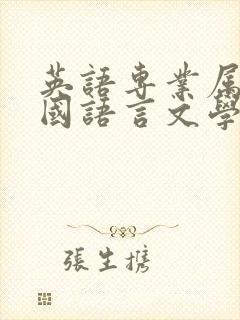 英語專業屬
國語言文學
張生擕